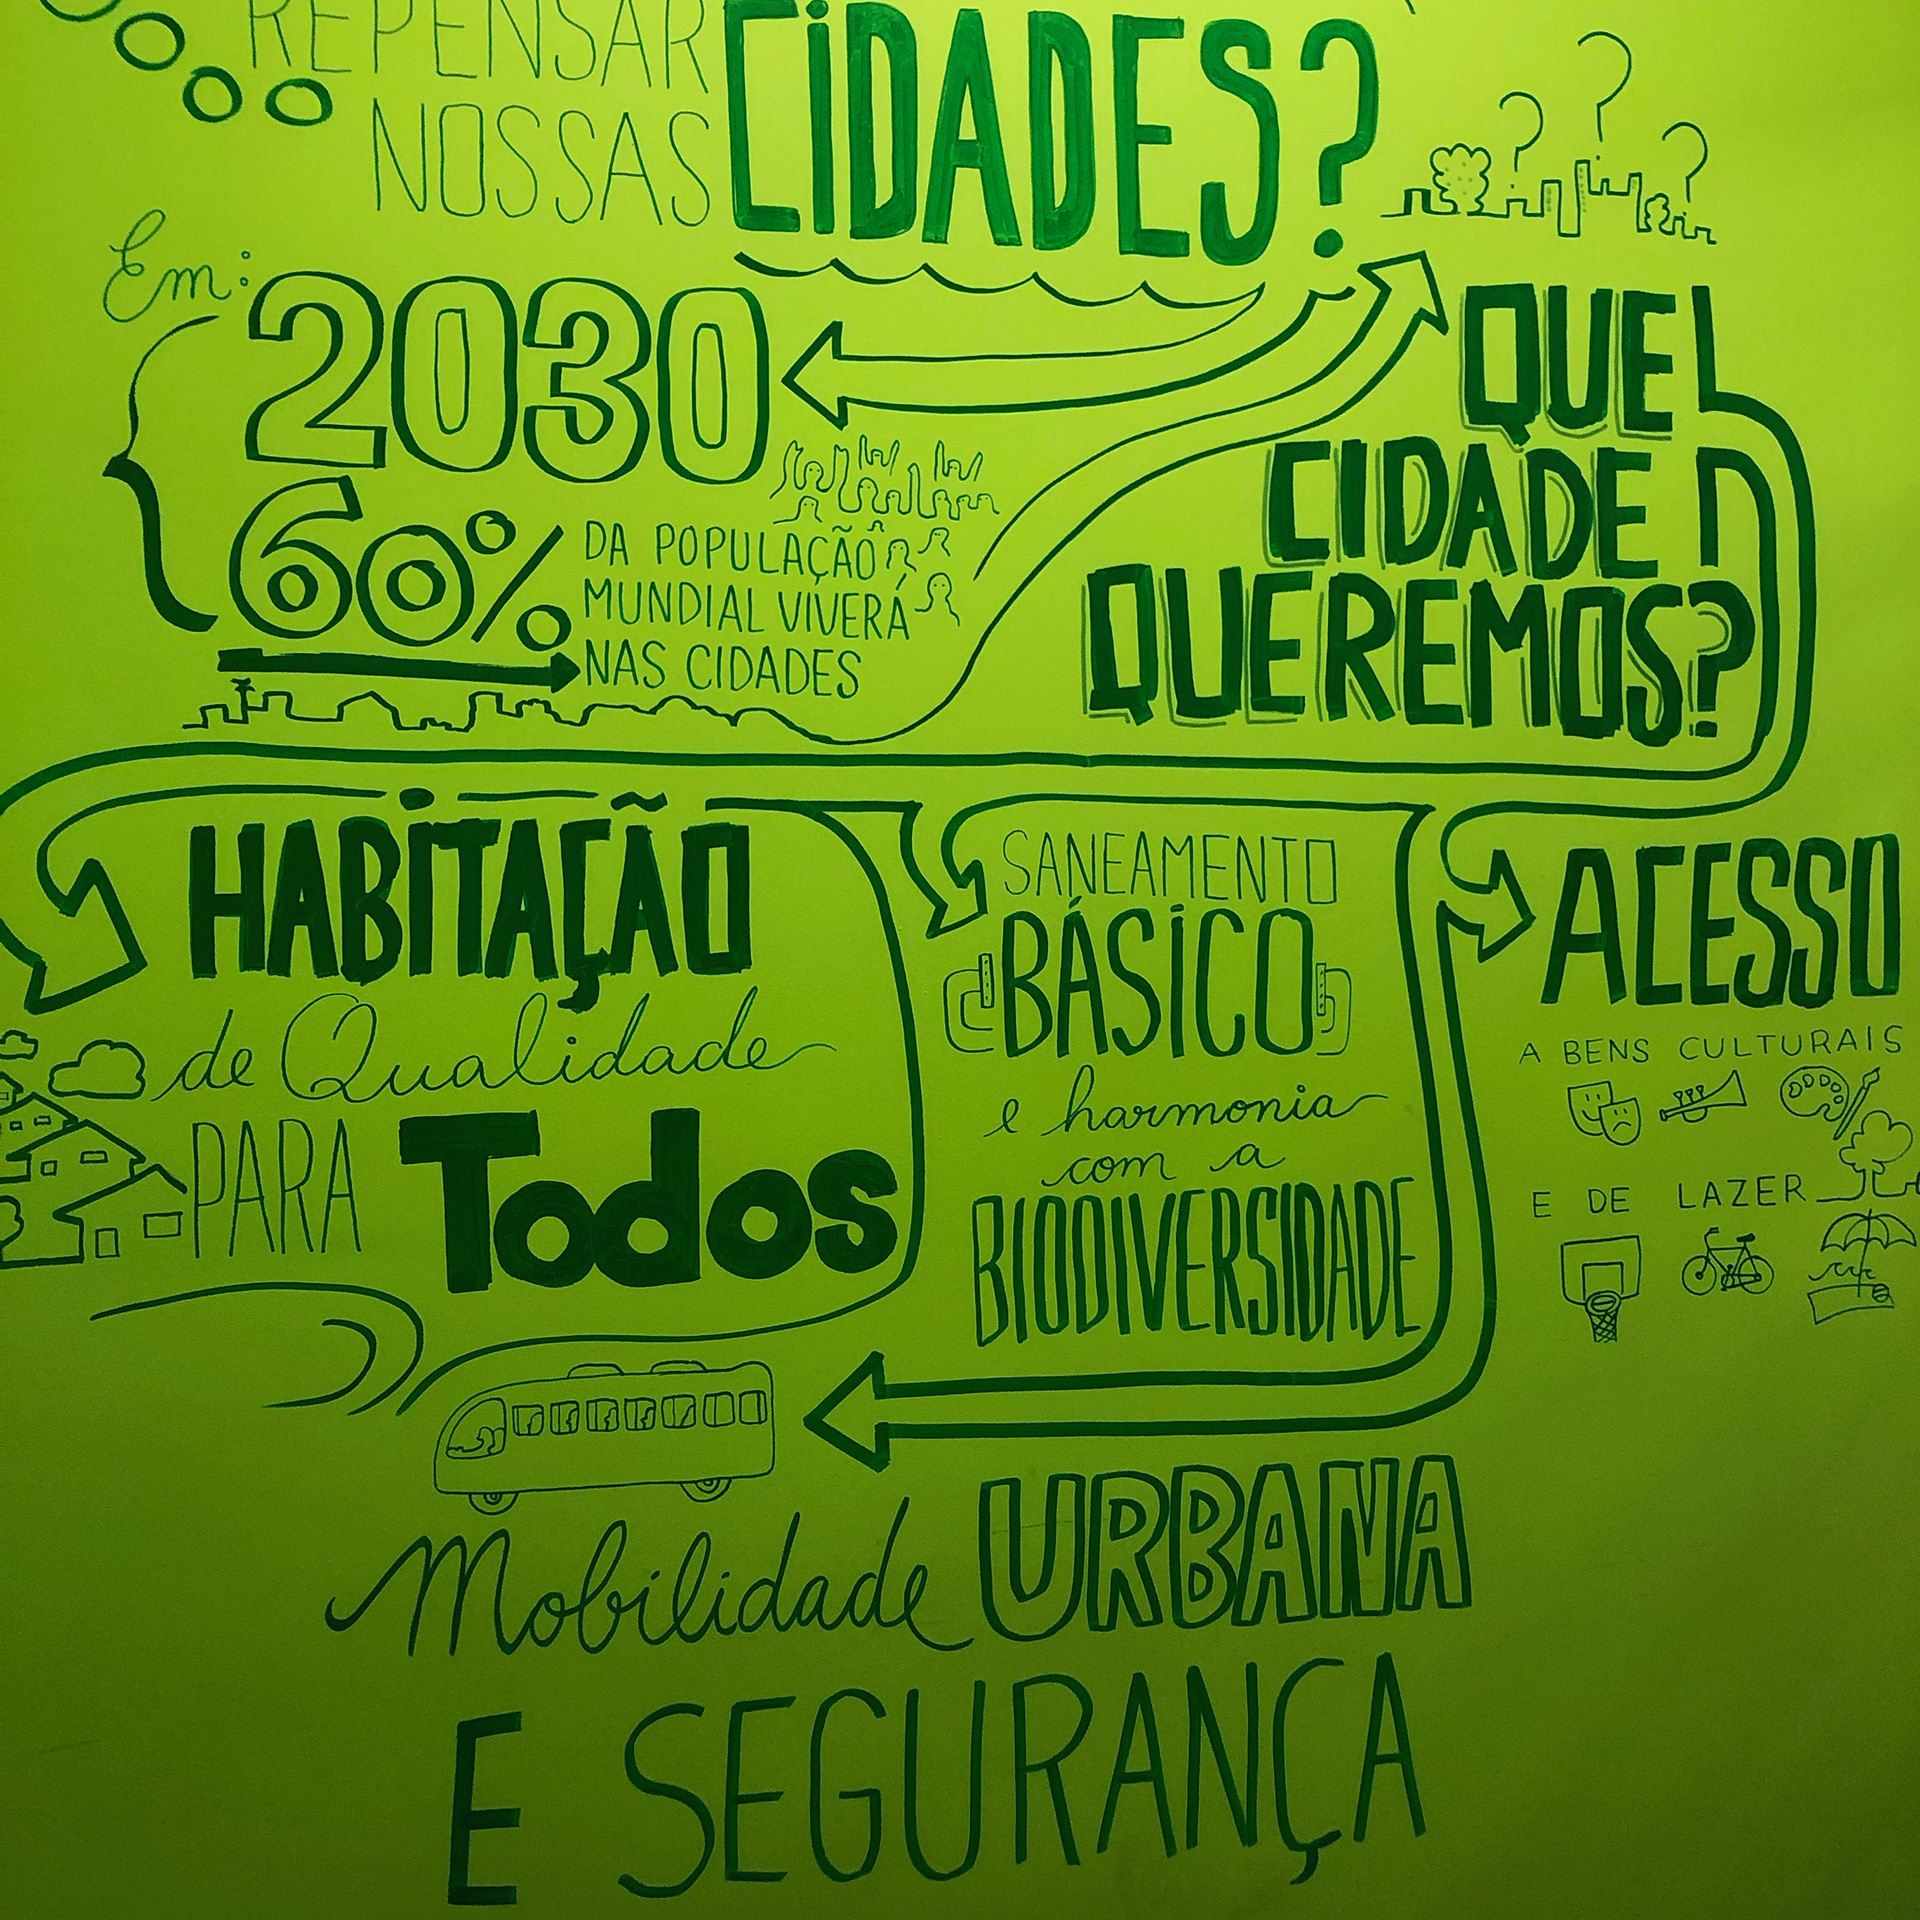 REPENSAR
NOSSAS
CIDADES?
Em:
2030
60%
DA POPULAÇÃO
MUNDIAL VIVERÁ
NAS CIDADES
QUE
CIDADE
QUEREMOS?
HABITAÇÃO
de Qualidade
PARA Todos
SANEAMENTO
BÁSICO
e harmonia
com a
BIODIVERSIDADE
ACESSO
A BENS CULTURAIS
E DE LAZER
Mobilidade URBANA
E SEGURANÇA